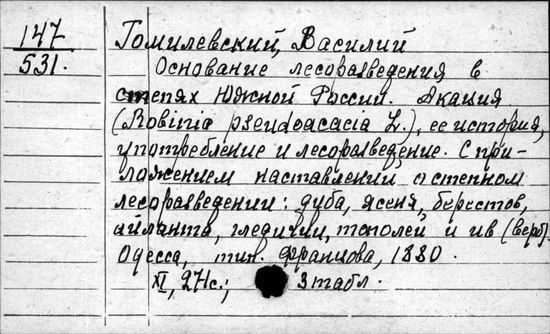 147
531.
Гомилевский, Василий
Основание лесоразведения в
степях Южной России. Акация
(Robinia pseudoacacia L.), ее история,
употребление и лесоразведение. С при-
ложением наставлений о степном
лесоразведении: дуба, ясеня, берестов,
айланта, гледичии, тополей и ив (верб).
Одесса, тип. Францова, 1880.
XI, 271с.; 3 табл.